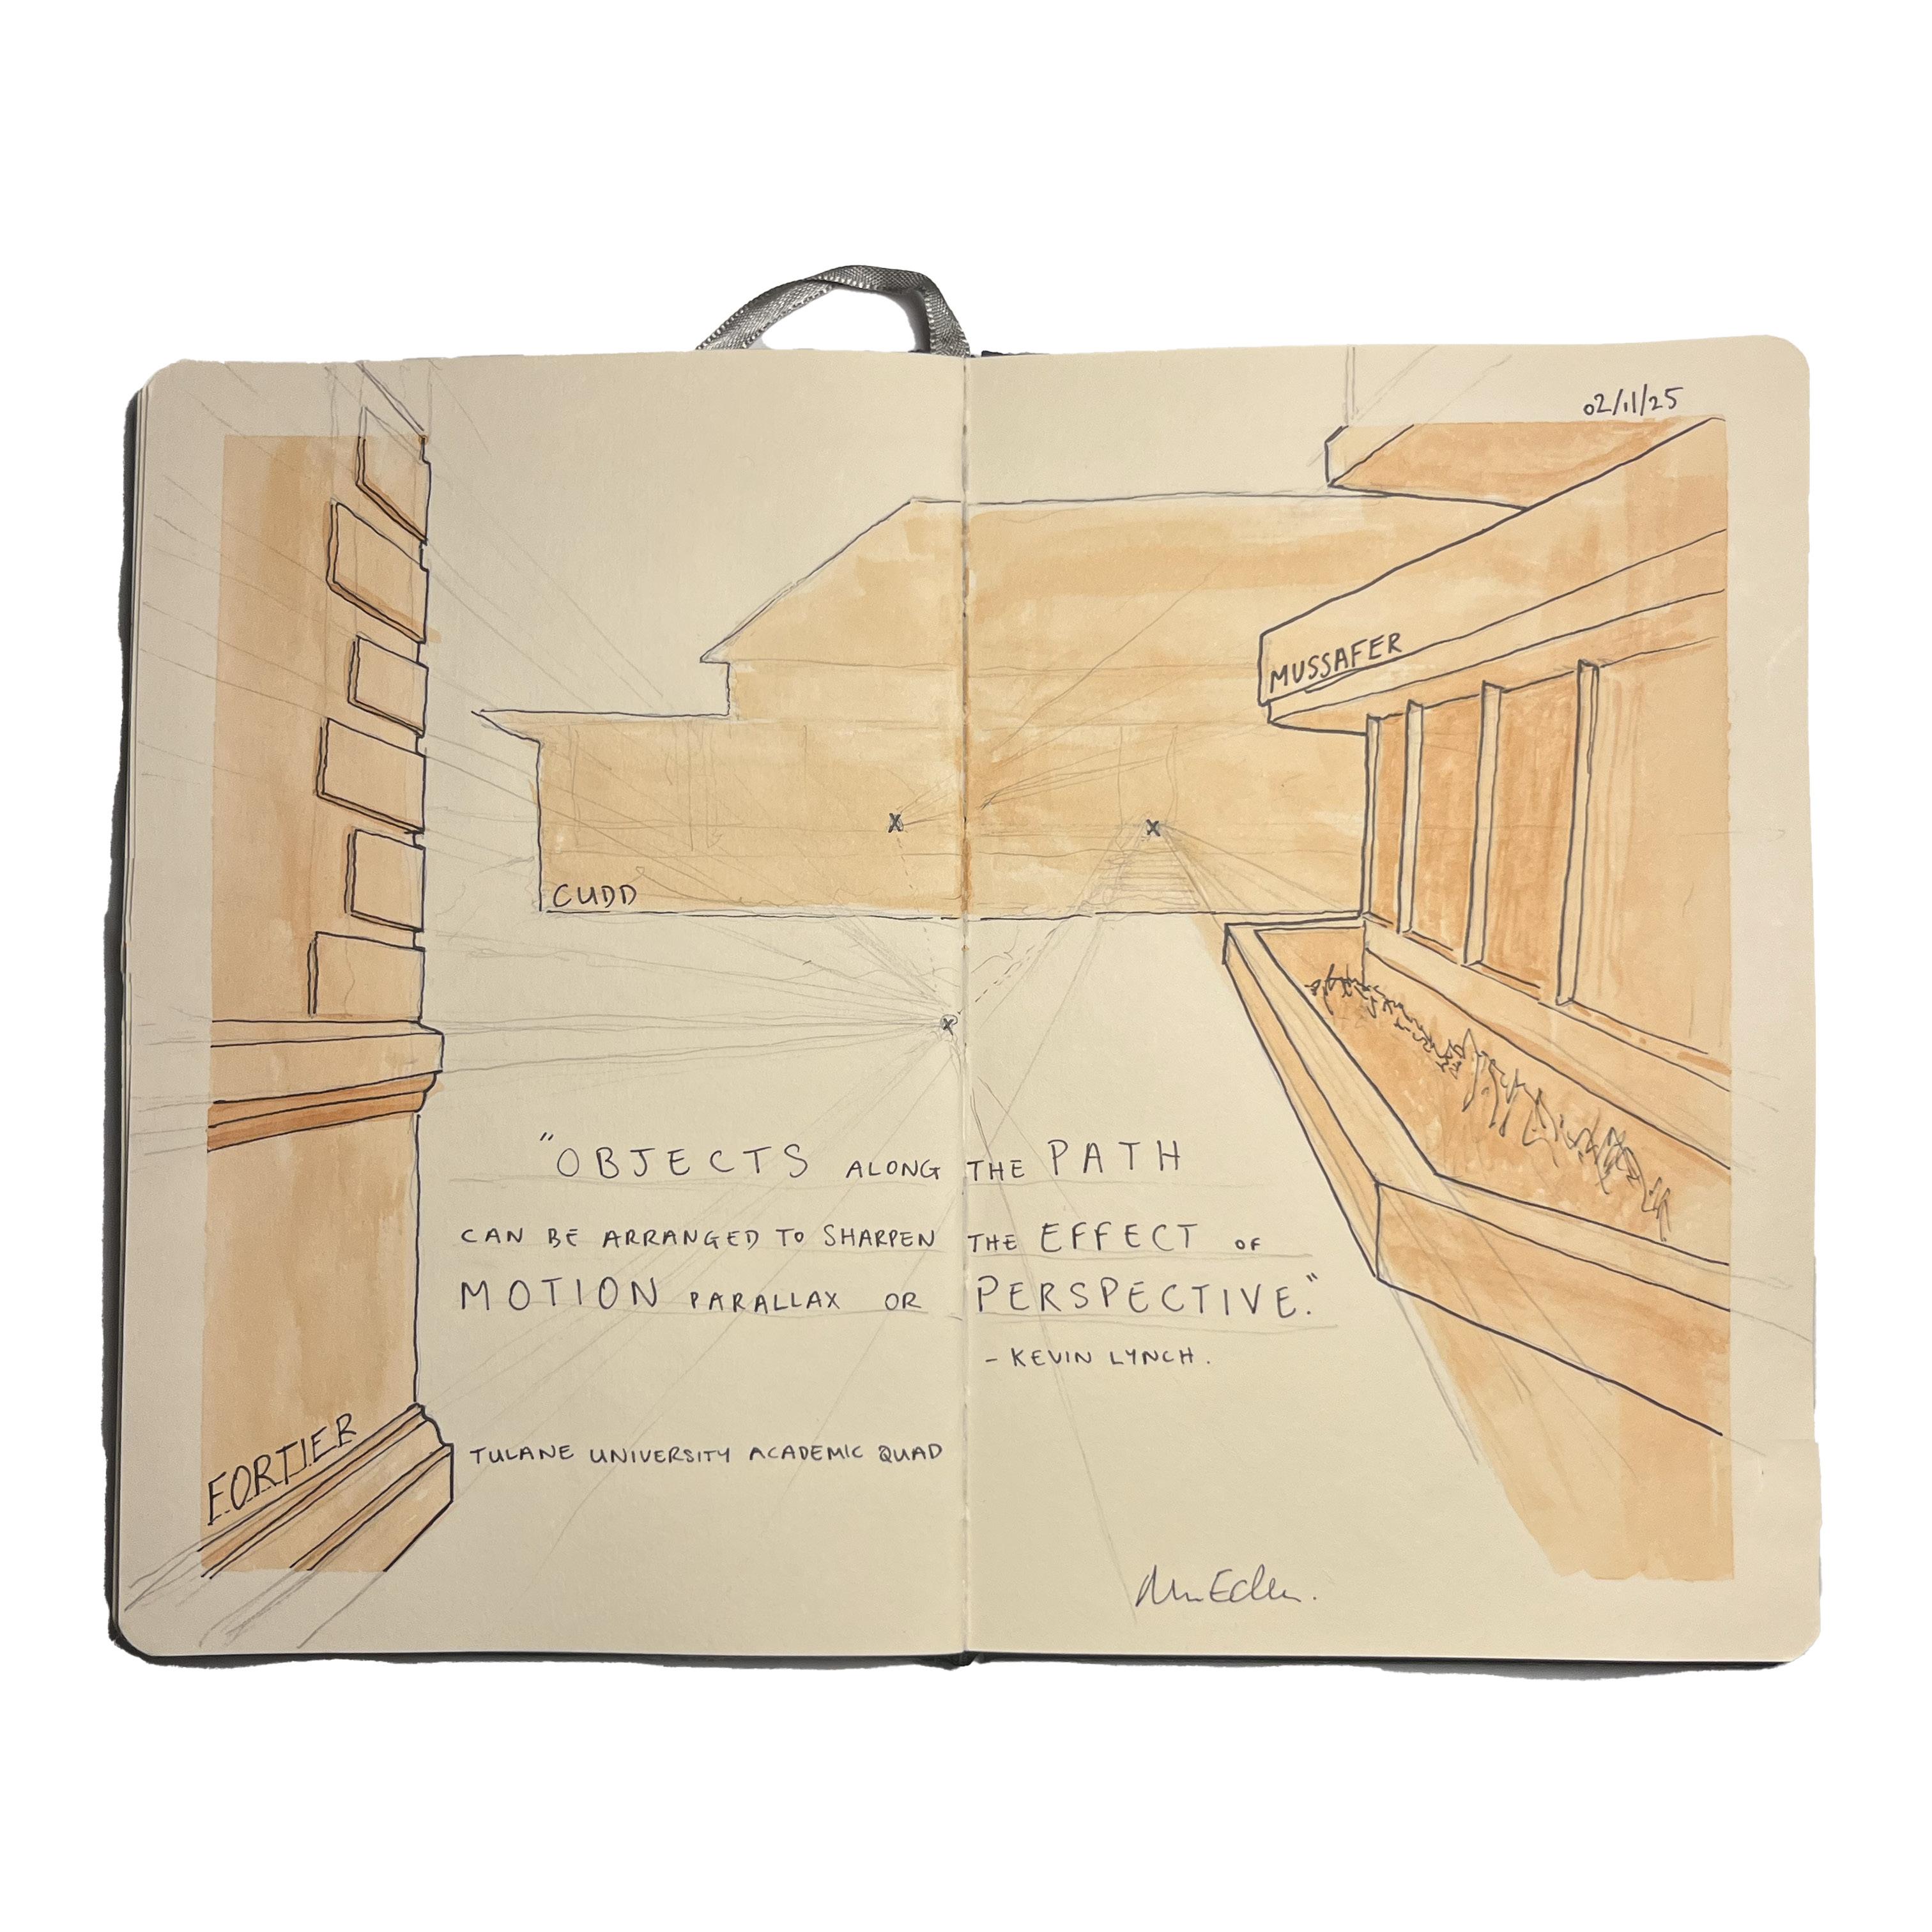 02/11/25
MUSSAFER
CUDD
"OBJECTS ALONG THE PATH
CAN BE ARRANGED TO SHARPEN THE EFFECT OF
MOTION PARALLAX OR PERSPECTIVE."
- KEVIN LYNCH.
FORTIER
TULANE UNIVERSITY ACADEMIC QUAD